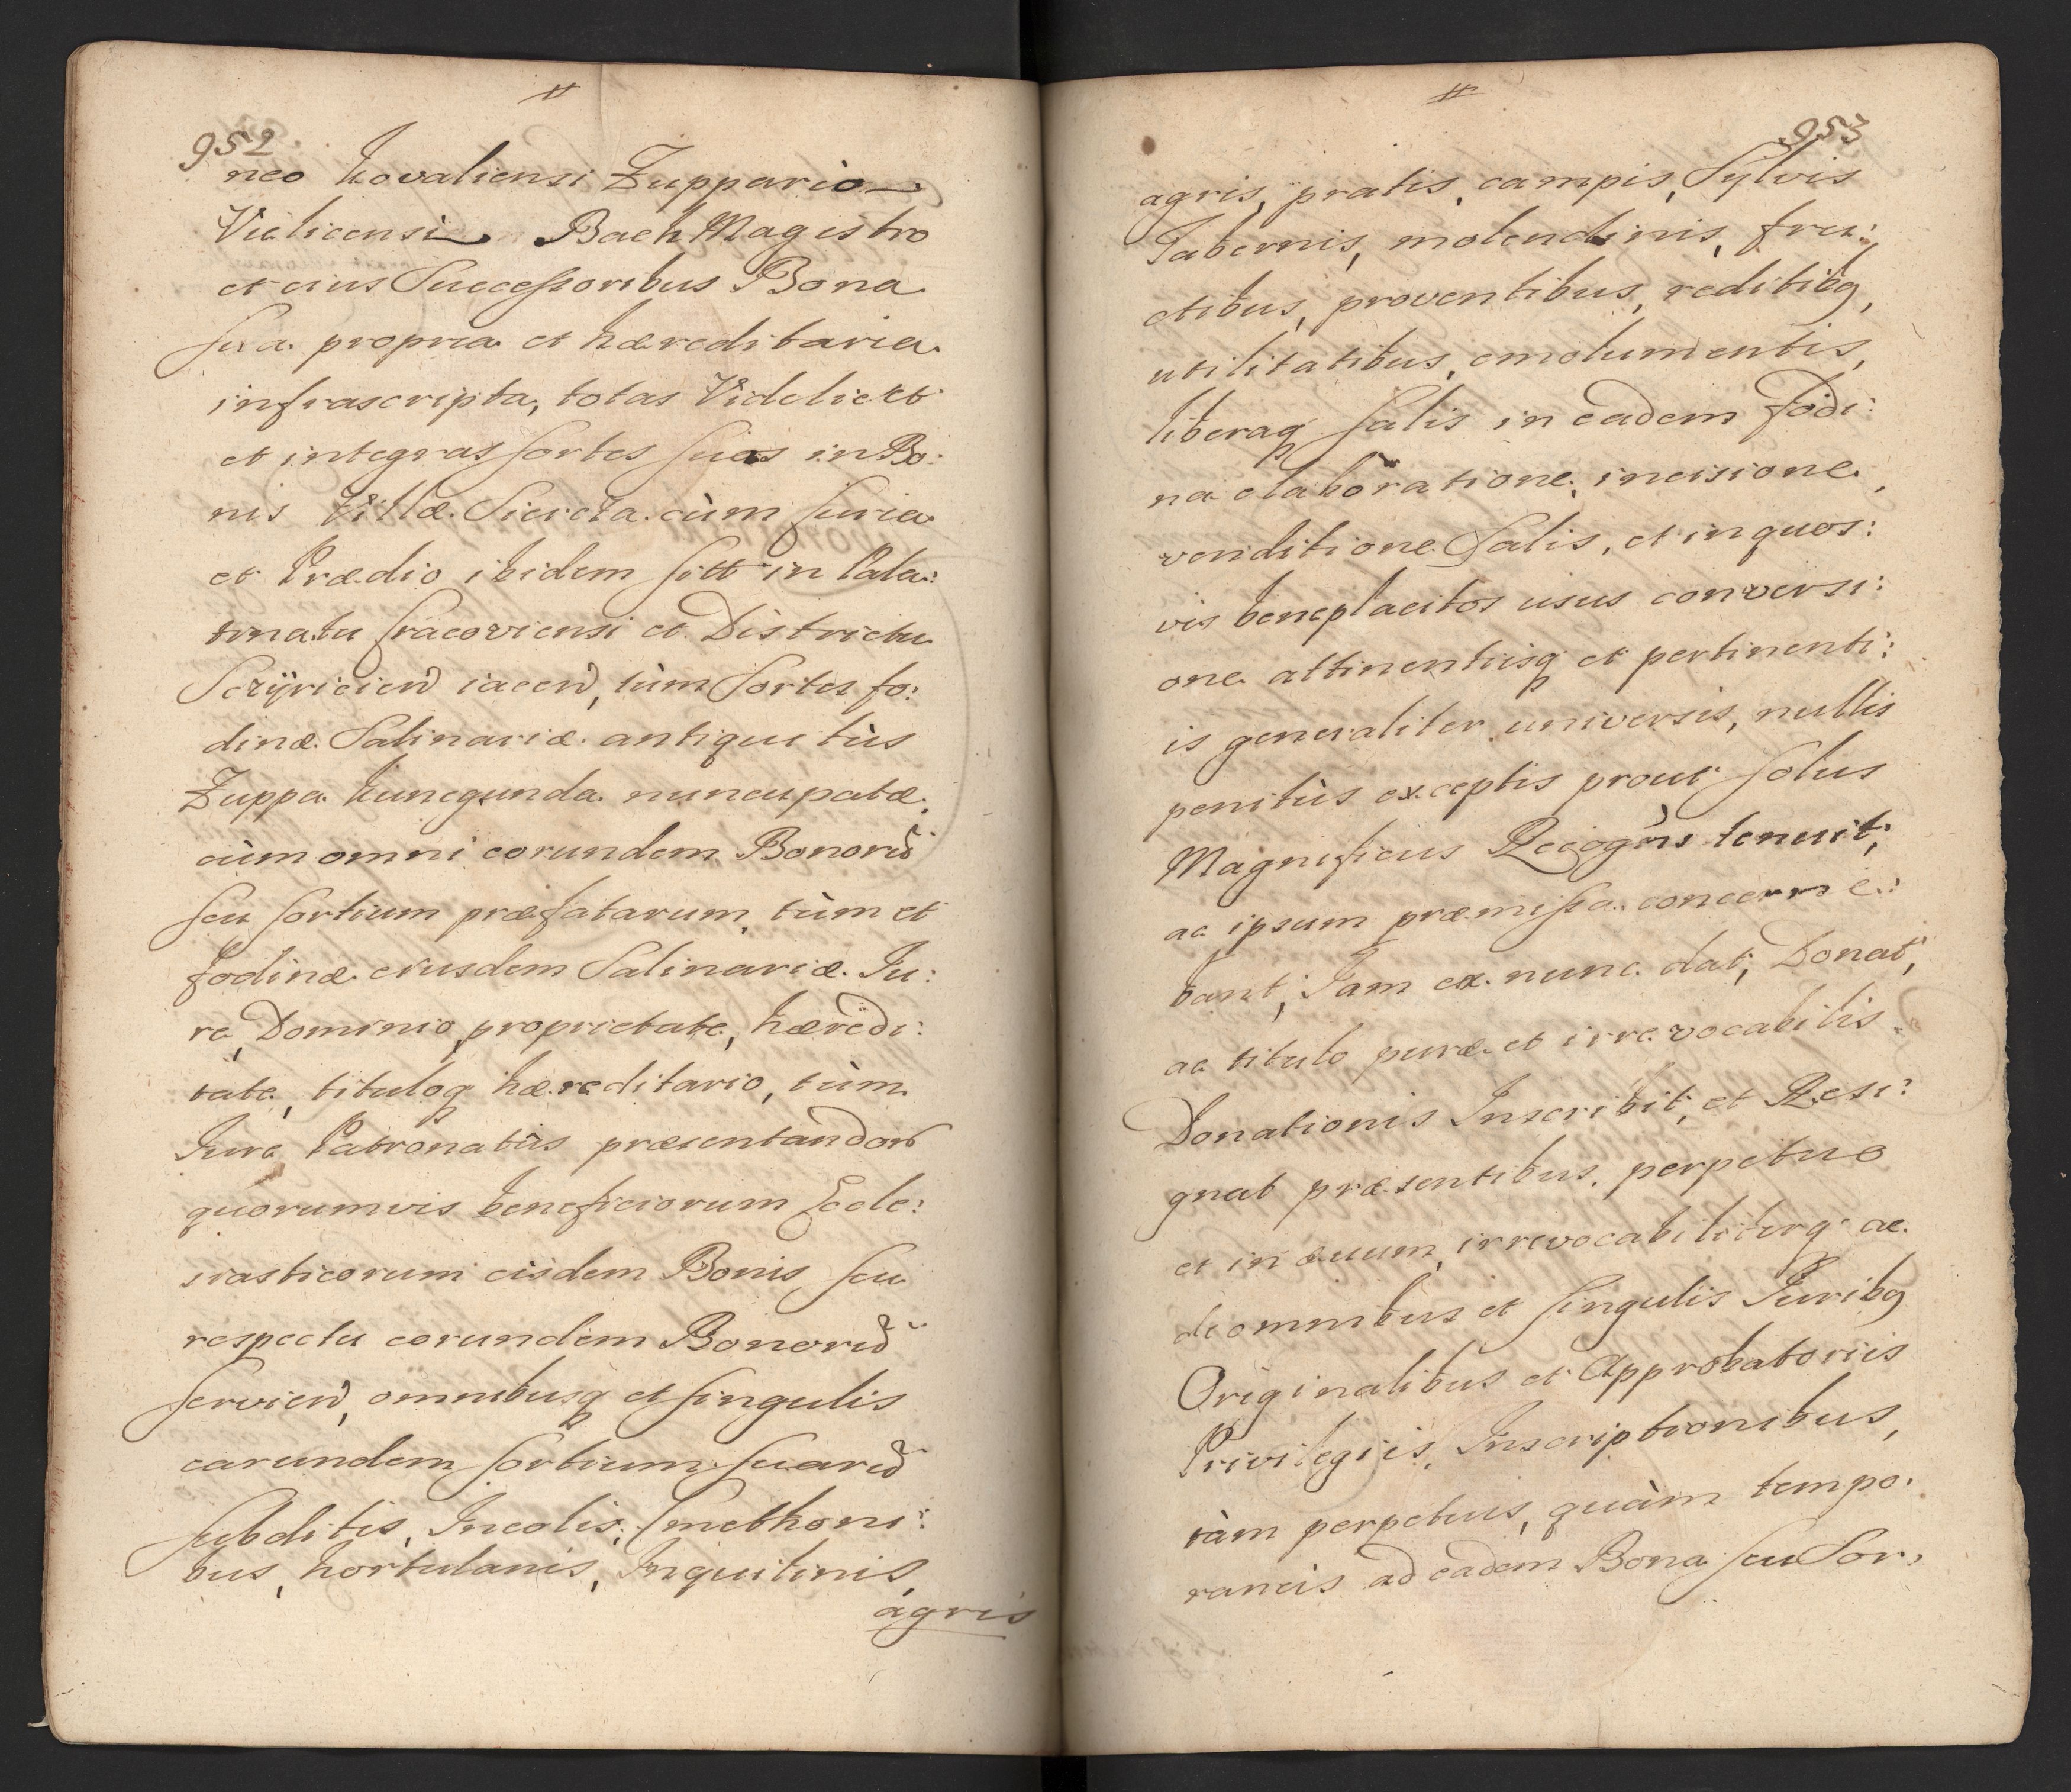 952.
neo Kovaliensi Zuppario
Vielicensi Bach Magistro
et eius Successoribus Bona
sua propria et hæreditaria
infrascripta, totas Videlicet
et integras sortes suas in Bo:
nis Villæ Siercza cùm Curia
et Prædio ibidem sitt in Pala:
tinatu Cracoviensi et Districtu
Sczÿricien̄ iacen̄, tùm Sortes fo:
dinæ Salinariæ antiquitùs
Zuppa Kunegunda nuncupatæ,
cùm omni eorundem Bonorū
seu sortium præfatarum, tùm et
fodinæ eiusdem Salinariæ Iu:
re, Dominio, proprietate, hæredi:
tate, tituloq hæreditario, tùm
Iure Patronatûs præsentandor
quorumvis beneficiorum Eccle:
siasticorum eisdem Bonis seu
respectu eorundem Bonorū
servien̄, omnibusq et singulis
earundem sortium suarū
subditis, Incolis, Cmethoni:
bus, hortulanis, Inquilinis,
agris
953
agris, pratis, campis, Sylvis
Tabernis, molendinis, fru:
ctibus, proventibus, reditibq,
utilitatibus, emolumentis,
liberaq salis in eadem fodi:
na elaboratione, incisione,
venditione Salis, et in quos:
vis beneplacitos usus conversi:
one attinentiisq et pertinenti:
is generaliter universis, nullis
penitùs exceptis prout solus
Magnificus Recogn̄s tenuit,
ac ipsum præmissa concerne:
bant, Iam ex nunc dat, Donat,
ac titulo puræ et irrevocabilis
Donationis Inscribit, et Resi:
gnat præsentibus, perpetuo
et in æuum, irrevocabiliterq ac
de omnibus et singulis Iuribq
Originalibus et Approbatoriis
Privilegiis, Inscriptionibus,
tàm perpetuis, quàm tempo:
raneis ad eadem Bona seu Sor: